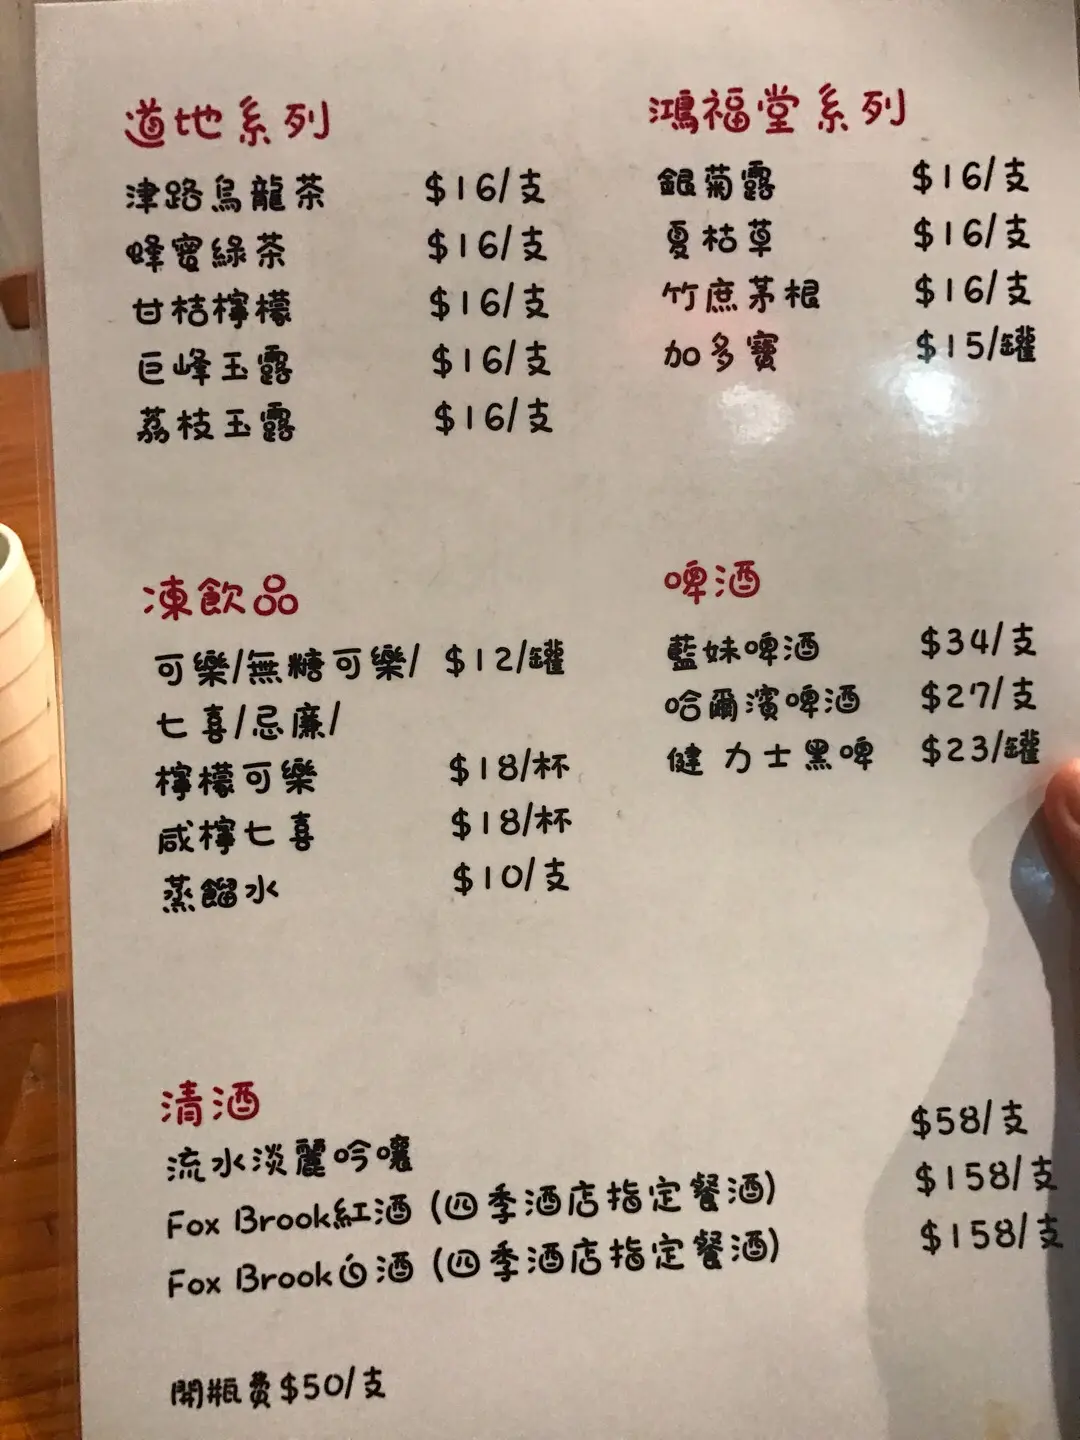 道地系列
津路烏龍茶 $16/支
蜂蜜綠茶 $16/支
甘桔檸檬 $16/支
巨峰玉露 $16/支
荔枝玉露 $16/支
鴻福堂系列
銀菊露 $16/支
夏枯草 $16/支
竹庶茅根 $16/支
加多寶 $15/罐
凍飲品
可樂/無糖可樂/ $12/罐
七喜/忌廉/
檸檬可樂 $18/杯
咸檸七喜 $18/杯
蒸餾水 $10/支
啤酒
藍妹啤酒 $34/支
哈爾濱啤酒 $27/支
健力士黑啤 $23/罐
清酒
流水淡麗吟嚷 $58/支
Fox Brook紅酒 (四季酒店指定餐酒) $158/支
Fox Brook白酒 (四季酒店指定餐酒) $158/支
開瓶費$50/支